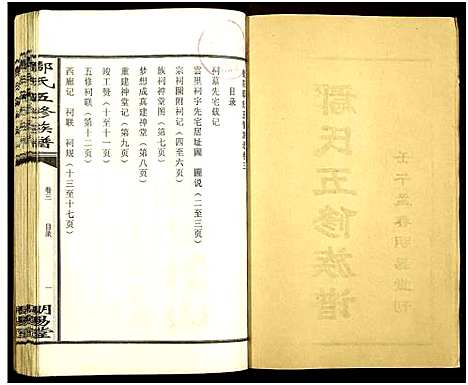 鄒氏五修族譜
目录
祠墓先宅载记
雲里祠宇先宅居址圖　圖說（二至三页）
宗祠圖附祠记（四至六页）
族祠神堂图（第七页）
梦想成真建神堂（第八页）
重建神堂记（第九页）
竣工赞（十至十一页）
五修祠联（第十二页）
西廊记　祠联　祠规（十三至十七页）
氏五修族譜
卷三
目录
一
明易堂